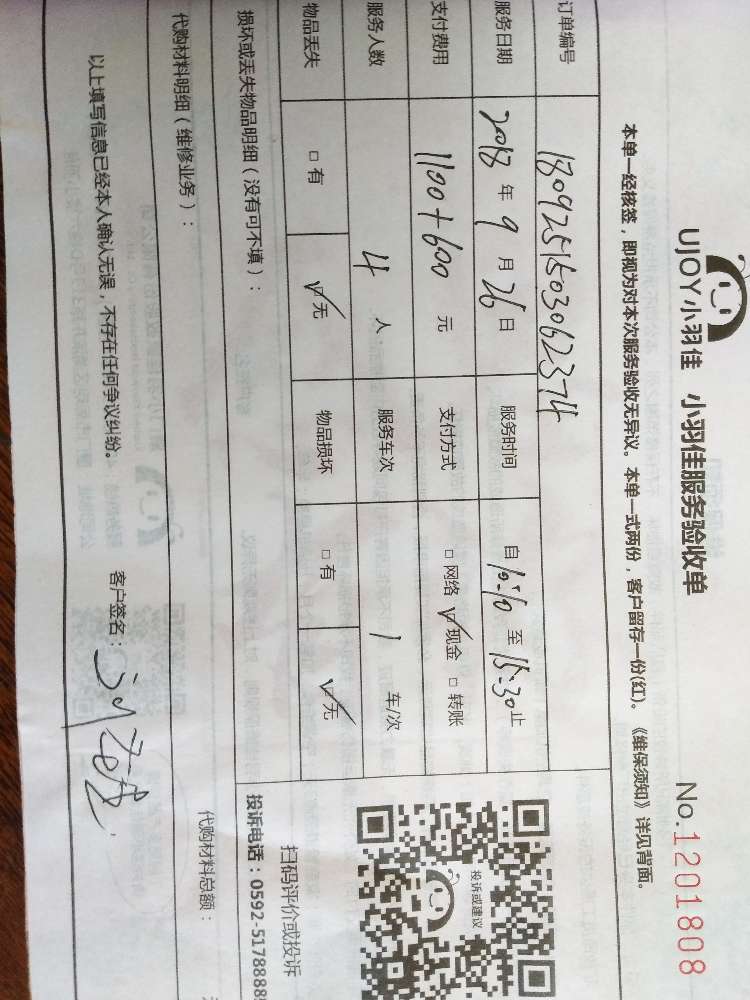 UJOY小羽佳 小羽佳服务验收单 No.1201808
本单一经核签，即视为对本次服务验收无异议。本单一式两份，客户留存一份(红)。《维保须知》详见背面。
订单编号 1809251503062374
服务日期 2018年9月26日 服务时间 自10:10至15:30止
支付费用 1100+600元 支付方式 □网络 ☑现金 □转账
服务人数 4人 服务车次 1车/次
物品丢失 □有 ☑无 物品损坏 □有 ☑无
投诉或建议
扫码评价或投诉
损坏或丢失物品明细（没有可不填）： 投诉电话：0592-5178888
代购材料明细（维修业务）： 代购材料总额：
以上填写信息已经本人确认无误，不存在任何争议纠纷。 客户签名：